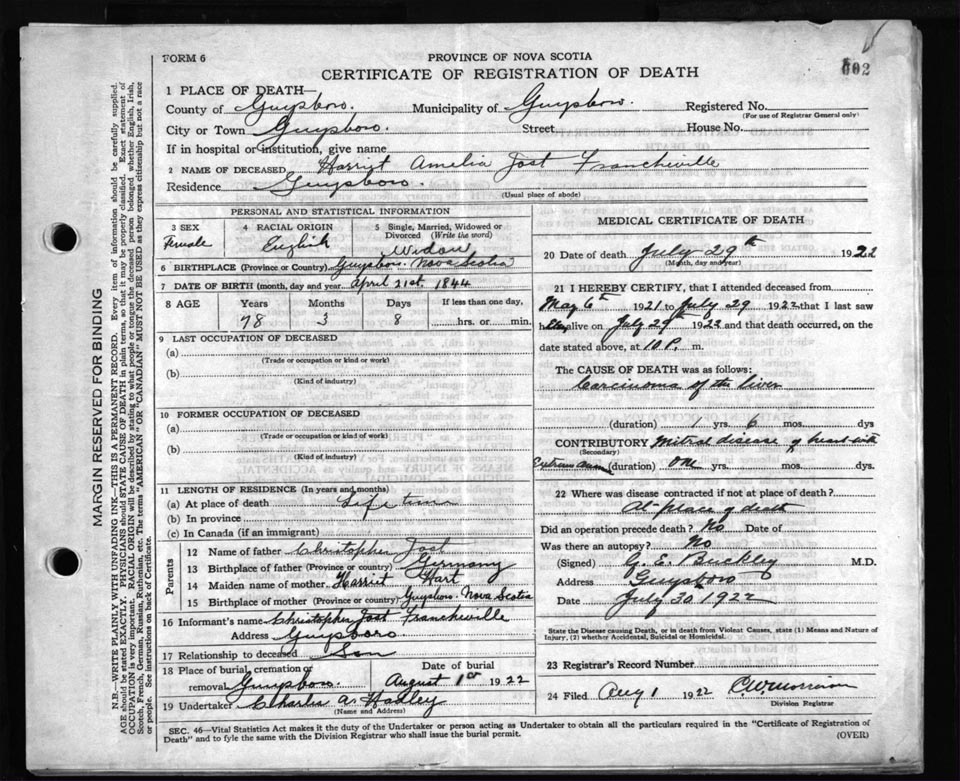 602
FORM 6
PROVINCE OF NOVA SCOTIA
CERTIFICATE OF REGISTRATION OF DEATH
MARGIN RESERVED FOR BINDING
N.B.—WRITE PLAINLY WITH UNFADING INK—THIS IS A PERMANENT RECORD. Every item of information should be carefully supplied.
AGE should be stated EXACTLY. PHYSICIANS should STATE CAUSE OF DEATH in plain terms, so that it may be properly classified. Exact statement of
OCCUPATION is very important. RACIAL ORIGIN will be described by stating to what people or tongue the deceased person belonged whether English, Irish,
Scotch, French, German, Russian, Ruthenian, etc. The terms "AMERICAN" or "CANADIAN" MUST NOT BE USED as they express citizenship but not a race
or people. See instructions on back of Certificate.
1 PLACE OF DEATH—
County of Guysboro. Municipality of Guysboro. Registered No.
(For use of Registrar General only)
City or Town Guysboro. Street House No.
If in hospital or institution, give name
2 NAME OF DECEASED Harriet Amelia Jost Francheville
Residence Guysboro.
(Usual place of abode)
PERSONAL AND STATISTICAL INFORMATION
3 SEX 4 RACIAL ORIGIN 5 Single, Married, Widowed or
Divorced (Write the word)
Female English Widow
6 BIRTHPLACE (Province or Country) Guysboro. Nova Scotia
7 DATE OF BIRTH (month, day and year) April 21st. 1844
8 AGE Years Months Days If less than one day,
78 3 8 hrs. or min.
9 LAST OCCUPATION OF DECEASED
(a)
(Trade or occupation or kind or work)
(b)
(Kind of industry)
10 FORMER OCCUPATION OF DECEASED
(a)
(Trade or occupation or kind of work)
(b)
(Kind of industry)
11 LENGTH OF RESIDENCE (In years and months)
(a) At place of death Life time
(b) In province
(c) In Canada (if an immigrant)
Parents
12 Name of father Christopher Jost
13 Birthplace of father (Province or Country) Germany
14 Maiden name of mother Harriet Hart
15 Birthplace of mother (Province or country) Guysboro. Nova Scotia
16 Informant's name Christopher Jost Francheville
Address Guysboro
17 Relationship to deceased Son
18 Place of burial, cremation or Date of burial
removal Guysboro. August 1st 1922
19 Undertaker Charles A. Hadley
(Name and Address)
MEDICAL CERTIFICATE OF DEATH
20 Date of death July 29th 1922
(Month, day and year)
21 I HEREBY CERTIFY, that I attended deceased from
May 6th 1921 to July 29 1922 that I last saw
her alive on July 29th 1922 and that death occurred, on the
date stated above, at 10 P. m.
The CAUSE OF DEATH was as follows:
Carcinoma of the liver
(duration) 1 yrs. 6 mos. dys
CONTRIBUTORY Mitral disease of heart with
(Secondary)
(duration) one yrs. mos. dys.
22 Where was disease contracted if not at place of death?
At place of death
Did an operation precede death? No Date of
Was there an autopsy? No
(Signed) G. E. Buckley M.D.
Address Guysboro
Date July 30 1922
State the Disease causing Death, or in death from Violent Causes, state (1) Means and Nature of
Injury, (2) whether Accidental, Suicidal or Homicidal.
23 Registrar's Record Number
24 Filed Aug 1 1922
Division Registrar
SEC. 46—Vital Statistics Act makes it the duty of the Undertaker or person acting as Undertaker to obtain all the particulars required in the "Certificate of Registration of
Death" and to fyle the same with the Division Registrar who shall issue the burial permit.
(OVER)